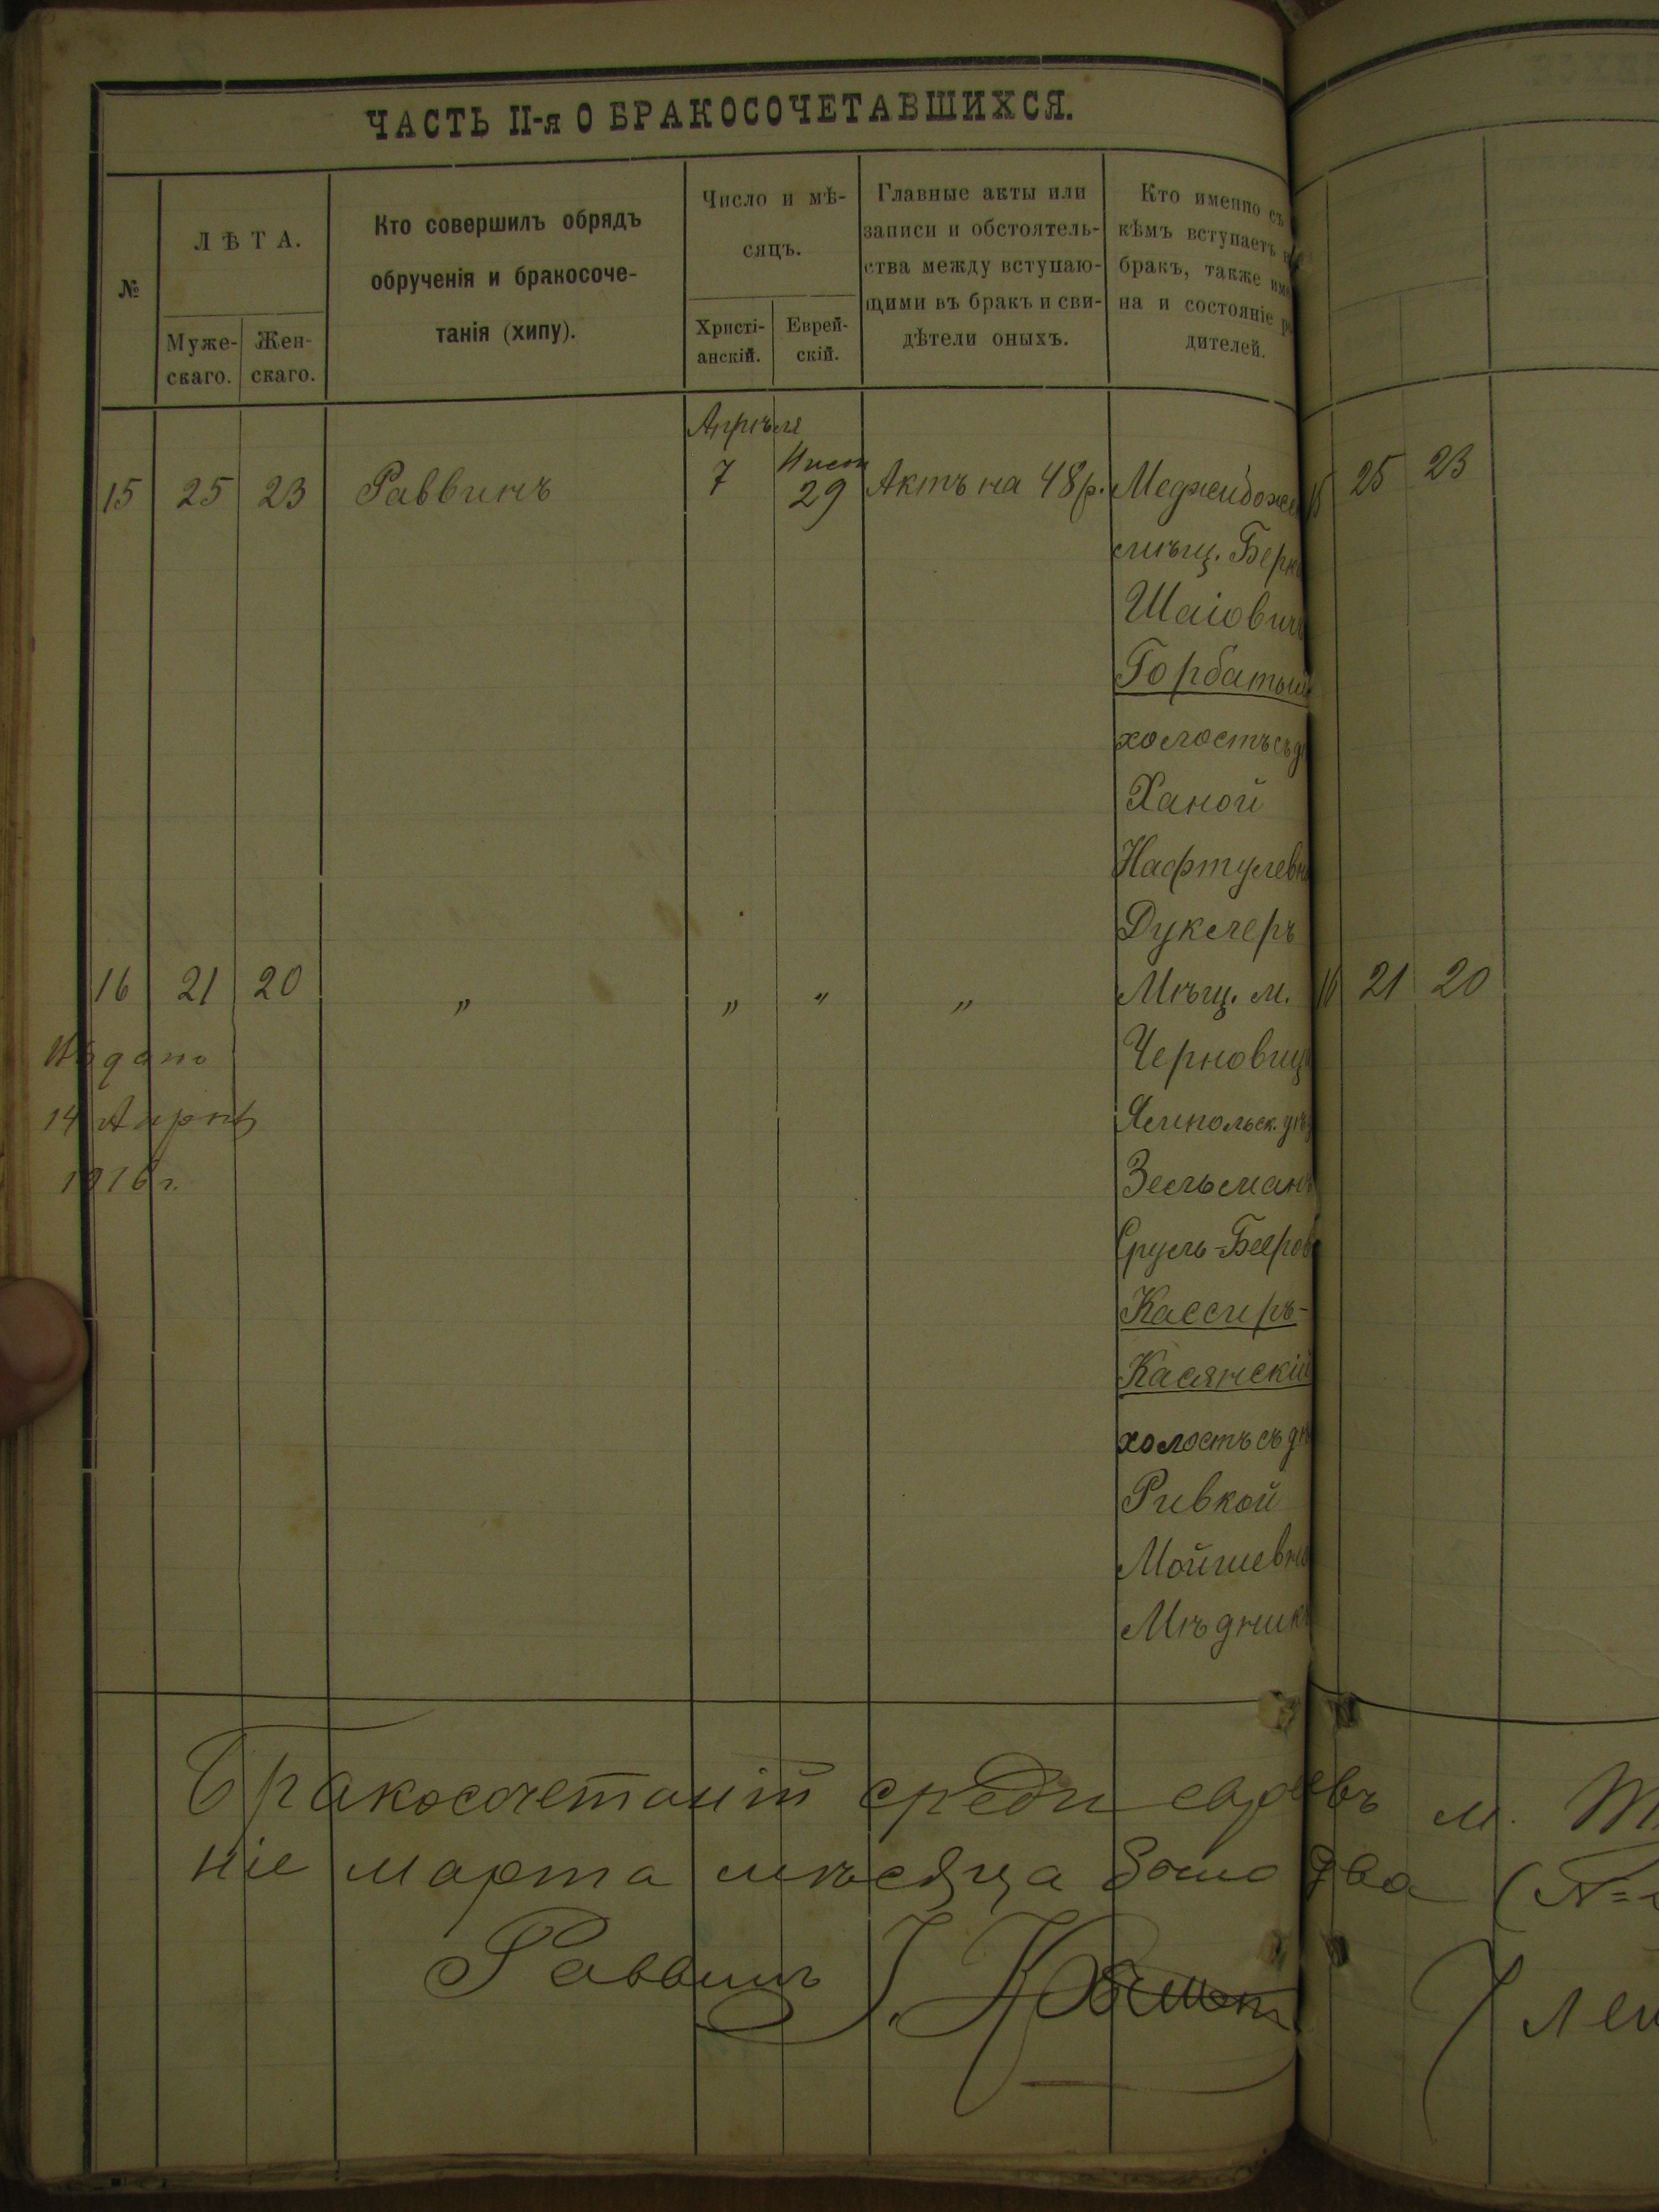 ЧАСТЬ II-я О БРАКОСОЧЕТАВШИХСЯ.
№
ЛѢТА.
Муже-
скаго.
Жен-
скаго.
Кто совершилъ обрядъ
обрученія и бракосоче-
танія (хипу).
Число и мѣ-
сяцъ.
Христі-
анскій.
Еврей-
скій.
Главные акты или
записи и обстоятель-
ства между вступаю-
щими въ бракъ и сви-
дѣтели оныхъ.
Кто именно съ
кѣмъ вступаетъ
бракъ, также
на и состояніе
дителей.
Апрѣля
15 25 23 Раввинъ 7 29 Актъ на 48 р.
мѣщ.
Шаіович
Горбатый
холостъ съ
Ханой
Нафтулевн
Дуклеръ
16 21 20 „ „ „ „ Мѣщ. м.
Черновиц
Ямпольск.
Зельман
Сруль-Беров
Кассиръ-
Касянскій
холостъ съ
Ривкой
Мойшевн
Мѣдник
14
1916 г.
25 23
21 20
Бракосочетаній среди евреевъ м.
ніе марта мѣсяца было два
Раввинъ